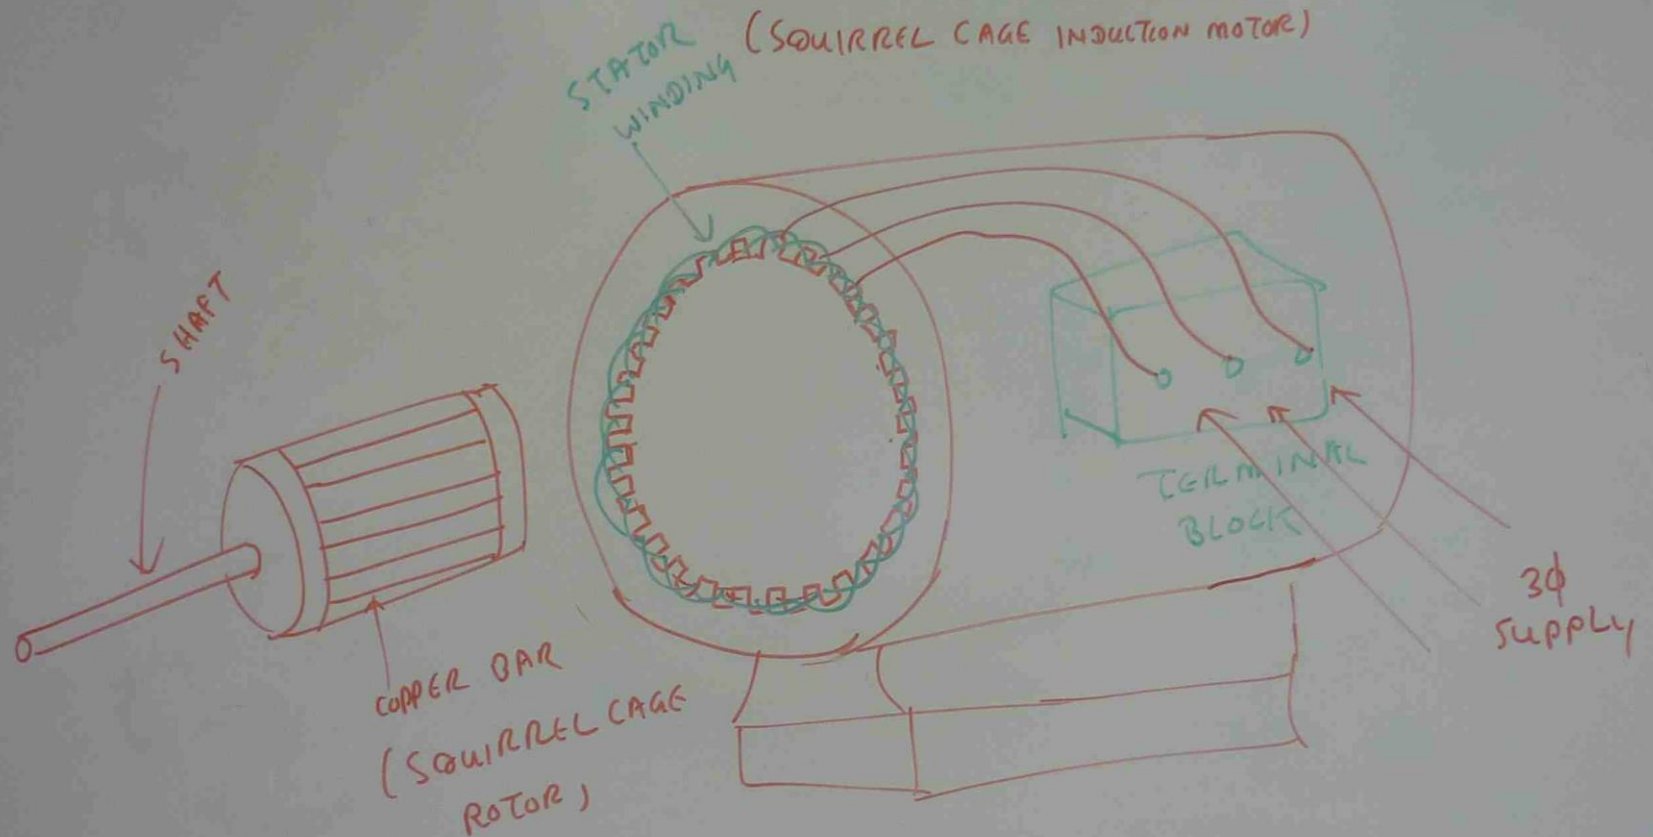 (SQUIRREL CAGE INDUCTION MOTOR)
STATOR
WINDING
SHAFT
TERMINAL
BLOCK
3ϕ
SUPPLY
COPPER BAR
(SQUIRREL CAGE
ROTOR)